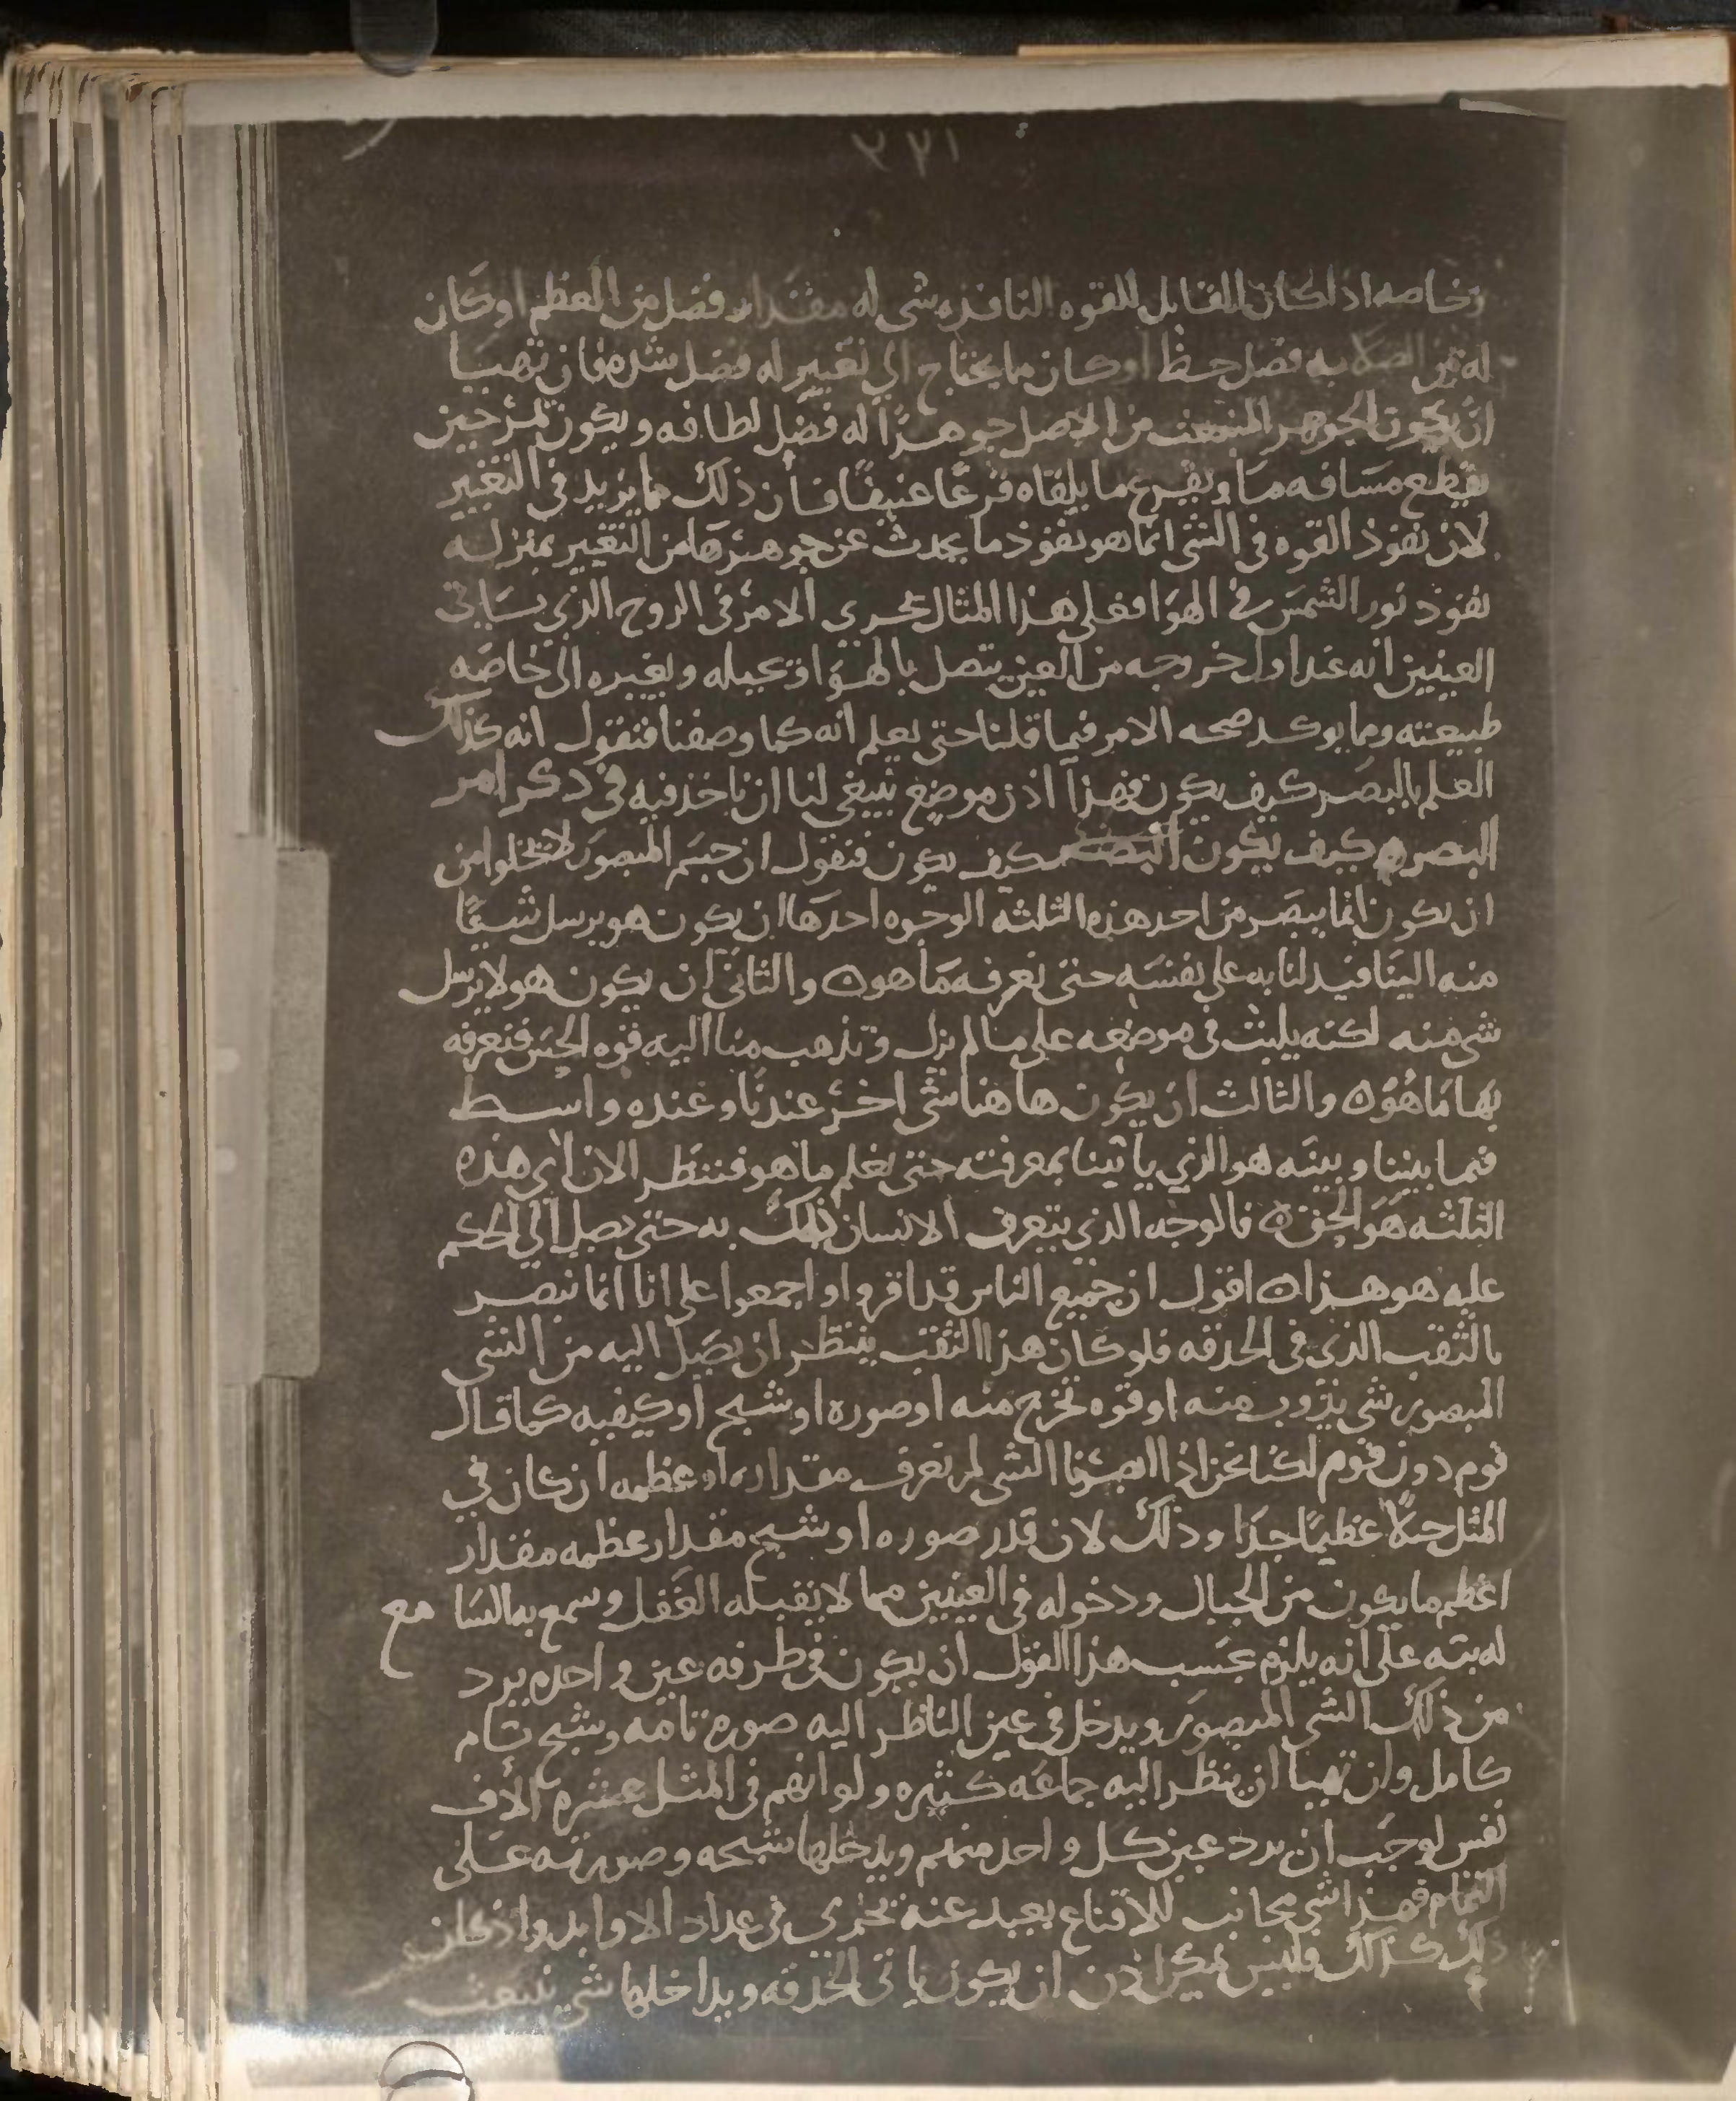 ١٢٢
وخاصه اذا كان القابل للقوه النافذه شي له مقدار فضل من العظم او كان
له من الصلابه فضل حظ او كان ما يحتاج الي تغيير له فضل شده فان تهيا
ان يكون الجوهر المنبعث من الاصل جوهرًا له فضل لطافه ويكون لمر حين
يقطع مسافه ما ويقرع ما يلقاه قرعًا عنيفًا فان ذلك مما يزيد في التغيير
لان نفوذ القوه في الشي انما هو نفوذ ما يحدث عن جوهرها من التغيير بمنزله
نفوذ نور الشمس في الهوا فعلي هذا المثال يجري الامر في الروح الذي ياتي
العينين انه عند اول خروجه من العين يتصل بالهوا ويحيله ويغيره الي خاصه
طبيعته ومما يوكد صحه الامر فيما قلنا حتى يعلم انه كما وصفنا فنقول انه كذلك
العلم بالبصر كيف يكون فهذا اذن موضع ينبغي لنا ان ناخذ فيه في ذكر امر
البصر كيف يكون كيف يكون فنقول ان جسم المبصور لا يخلوا من
ان يكون انما يبصر من احد هذه الثلثه الوجوه احدها ان يكون هو يرسل شيًا
منه الينا فيدلنا به علي نفسه حتى نعرفه ما هو ه والثاني ان يكون هو لا يرسل
شي منه لكنه يلبث في موضعه علي ما لم يزل وتذهب منا اليه قوه الحس فنعرفه
بها ما هو ه والثالث ان يكون هاهنا شي اخر عندنا وعنده واسط
فيما بيننا وبينه هو الذي ياتينا بمعرفته حتى نعلم ما هو فننظر الان اي هذه
الثلثه هو الحق ه فالوجه الذي يتعرف الانسان ذلك به حتى يصل الي الحكم
عليه هو هذا ه اقول ان جميع الناس قد اقروا واجمعوا علي انا انما نبصر
بالثقب الذي في الحدقه فلو كان هذا الثقب ينتظر ان يصل اليه من الشي
المبصور شي يذوب منه او قوه تخرج منه او صوره او شبح او كيفيه كما قال
قوم دون قوم لكنا نحن اذا ابصرنا الشي لم نعرف مقداره او عظمه ان كان في
المثل جبلاً عظيمًا جدا وذلك لان قدر صوره او شبح مقدار عظمه مقدار
اعظم ما يكون من الجبال ودخوله في العينين مما لا يقبله العقل وسمع به السا مع
له بته علي انه يلزم بحسب هذا القول ان يكون في طرفه عين واحده يرد
من ذلك الشي المبصور ويدخل في عين الناظر اليه صوره تامه وشبح تام
كامل وان تهيا ان ينظر اليه جماعه كثيره ولو انهم في المثل عشره الاف
نفس لوجب ان يرد عين كل واحد منهم ويدخلها شبحه وصورته علي
التمام فهذا شي مجانب للاقناع بعيد عنه يجري في عداد الاوابد واذ كان
ذلك كذلك فليس يمكن اذن ان يكون ياتي الحدقه ويداخلها شي ينبعث